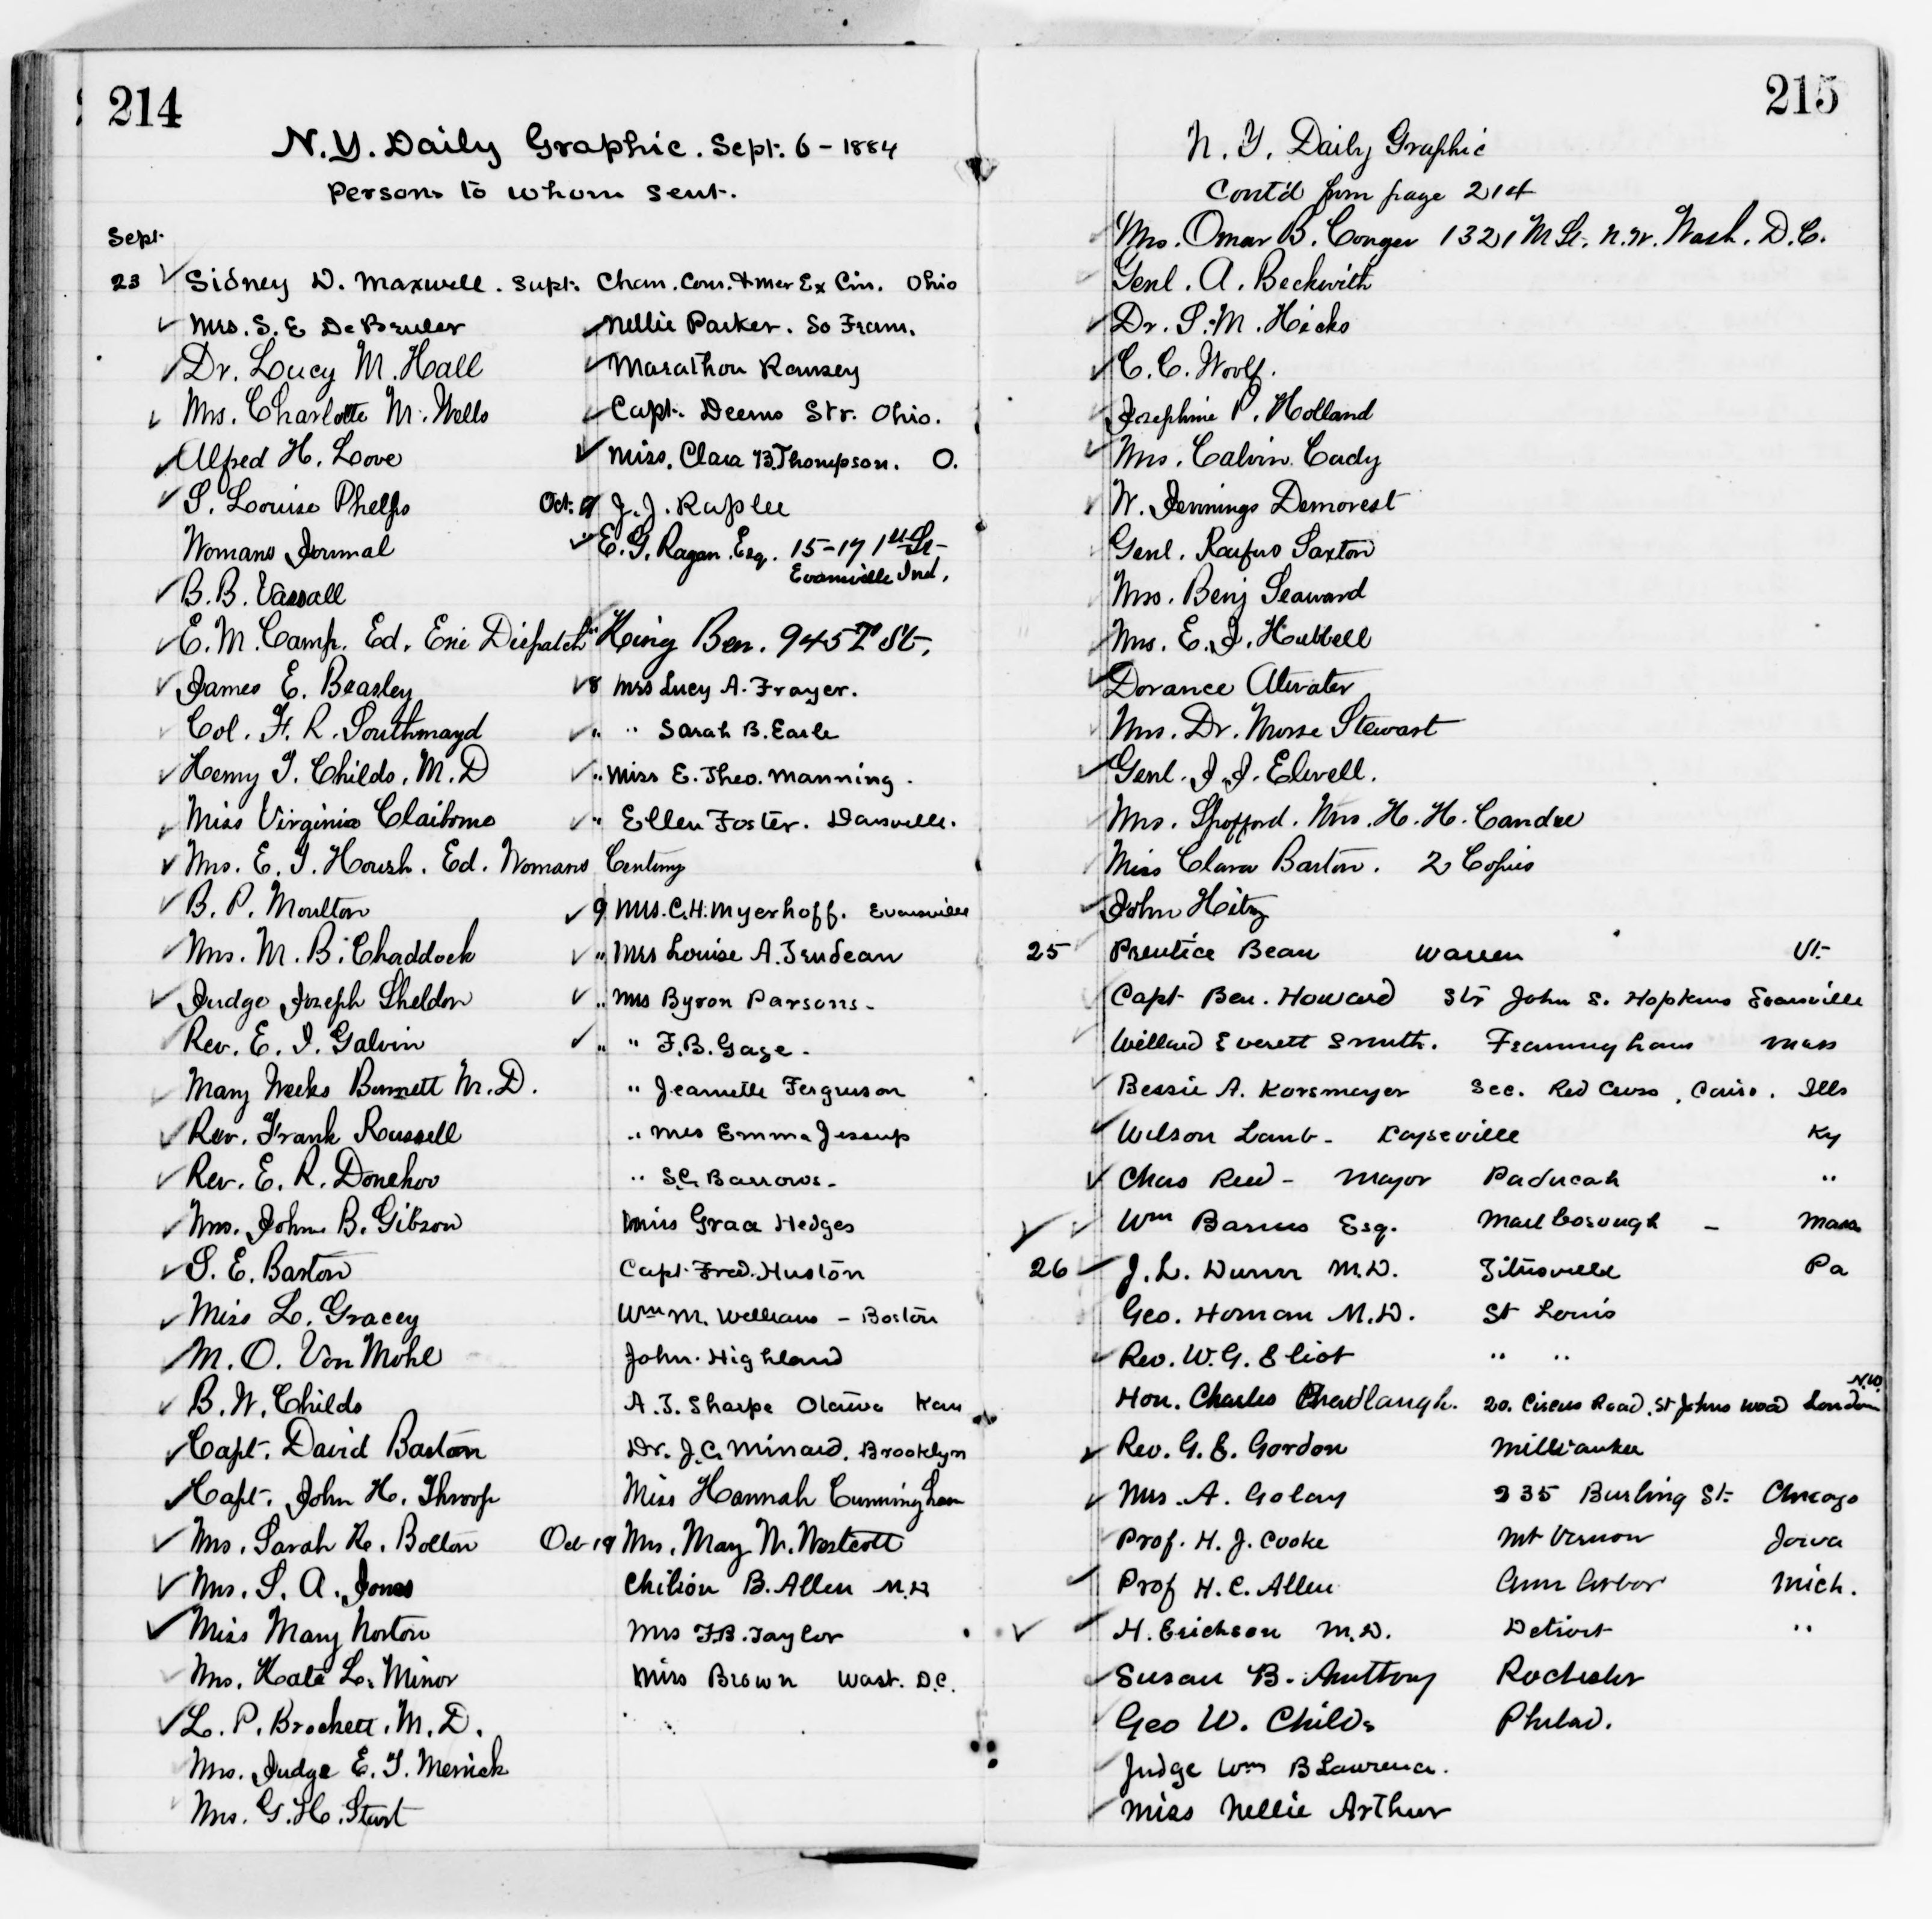 214
N.Y. Daily Graphic. Sept. 6 - 1884
Persons to whom sent.
Sept.
23 Sidney D. Maxwell. Supt. Cham. Com. & Mer Ex Cin. Ohio
Mrs. S. E. De Bruler
Dr. Lucy M. Hall
Mrs. Charlotte M. Wells
Alfred H. Love
S. Louise Phelps
Womans Journal
B. B. Vassall
E. M. Camp. Ed. Erie Dispatch
James E. Beasley
Col. F. R. Southmayd
Henry T. Childs, M.D
Miss Virginia Claiborne
Mrs. E. T. Housh. Ed. Womans Century
B. P. Moulton
Mrs. M. B. Chaddock
Judge Joseph Sheldon
Rev. E. I. Galvin
Mary Weeks Burnett M.D.
Rev. Frank Russell
Rev. E. R. Donehoo
Mrs. John B. Gibson
S. E. Barton
Miss L. Gracey
M. O. Von Mohl
B. W. Childs
Capt. David Barton
Capt. John H. Throop
Mrs. Sarah K. Bolton
Mrs. S. A. Jones
Miss Mary Norton
Mrs. Kate L. Minor
L. P. Brockett, M.D.
Mrs. Judge E. T. Merrick
Mrs. G. H. Sturt
Nellie Parker. So Fram.
Marathon Ramsey
Capt. Deems Str. Ohio.
Miss. Clara B. Thompson. O.
Oct. 7 J. J. Raplee
" E. G. Ragan. Esq. 15-17 1st St-
Evansville Ind.
" King Ben. 945 T St.
8 Mrs Lucy A. Frayer.
" " Sarah B. Earle
" Miss E. Theo. Manning.
" Ellen Foster. Dansville.
9 Mrs. C. H. Myerhoff. Evansville
" Mrs Louise A. Trudeau
" Mrs Byron Parsons-
" " F. B. Gage-
" Jeanette Ferguson
" Mrs Emma Jessup
" S. C. Barrows-
Miss Grace Hedges
Capt. Fred. Huston
Wm M. Williams - Boston
John Highland
A. T. Sharpe Ottawa Kan
Dr. J. C. Minard. Brooklyn
Miss Hannah Cunningham
Oct 19 Mrs. May W. Westcott
Chilion B. Allen M.D
Mrs F. B. Taylor
Miss Brown Wash. D.C.
215
N. Y. Daily Graphic
Cont'd from page 214
Mrs. Omar B. Conger 1321 M St. N.W. Wash. D.C.
Genl. A. Beckwith
Dr. S. M. Hicks
C. C. Woolf.
Josephine P. Holland
Mrs. Calvin Cady
W. Jennings Demorest
Genl. Rufus Saxton
Mrs. Benj Seaward
Mrs. E. J. Hubbell
Dorance Atwater
Mrs. Dr. Morse Stewart
Genl. J. J. Elwell.
Mrs. Spofford. Mrs. H. H. Candee
Miss Clara Barton. 2 Copies
John Hitz
25 Prentice Bean Warren Vt.
Capt Ben. Howard Str John S. Hopkins Evansville
Willard Everett Smith. Framingham Mass
Bessie A. Korsmeyer Sec. Red Cross, Cairo. Ills
Wilson Lamb- Ky
Chas Reed - Mayor Paducah "
Wm Barnes Esq. Marlborough - Mass
26 J. L. Dunn M.D. Titusville Pa
Geo. Homan M.D. St Louis
Rev. W. G. Eliot " "
Hon. Charles Bradlaugh. 20. Circus Road. St Johns Wood London N.W.
Rev. G. E. Gordon Milwaukee
Mrs. A. Golay 235 Burling St. Chicago
Prof. H. J. Cooke Mt Vernon Iowa
Prof H. C. Allen Ann Arbor Mich.
H. Erichsen M.D. Detroit "
Susan B. Anthony Rochester
Geo W. Childs Philad.
Judge Wm B Lawrence.
Miss Nellie Arthur